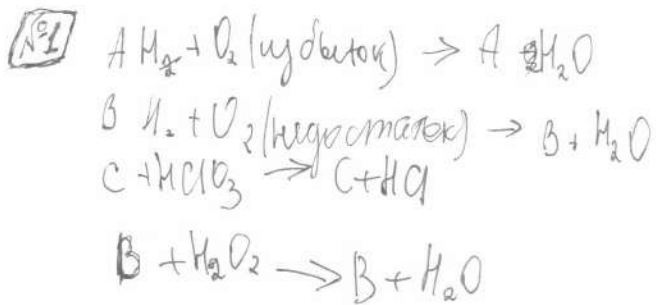 №1
A H₂ + O₂ (избыток) → A H₂O
B H₂ + O₂ (недостаток) → B + H₂O
C + HClO₃ → C + HCl
B + H₂O₂ → B + H₂O